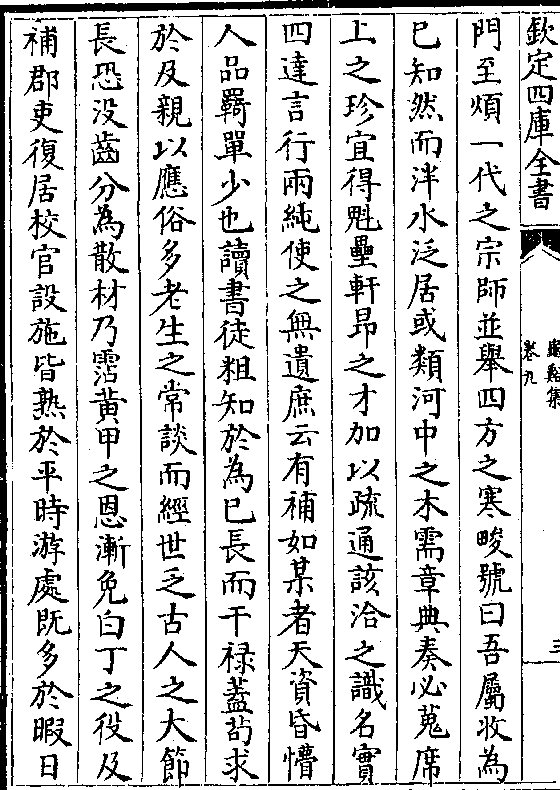 欽定四庫全書
卷九
三
門至煩一代之宗師並舉四方之寒畯號曰吾屬收為
已知然而泮水泛居或類河中之木需章典奏必蒐席
上之珍宜得魁壘軒昂之才加以疏通該洽之識名實
四達言行兩純使之無遺庶云有補如某者天資昏懵
人品羇單少也讀書徒粗知於為已長而干祿葢茍求
於及親以應俗多老生之常談而經世乏古人之大節
長恐没齒分為散材乃霑黃甲之恩漸免白丁之役及
補郡吏復居校官設施皆熟於平時游處既多於暇日